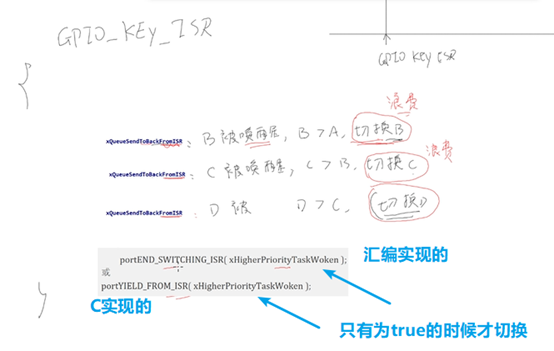 GPIO_KEY_ISR
GPIO KEY ISR
{
浪费
xQueueSendToBackFromISR: B被唤醒, B>A, 切换B
浪费
xQueueSendToBackFromISR: C被唤醒, C>B, 切换C
xQueueSendToBackFromISR: D被 D>C, 切换D
portEND_SWITCHING_ISR( xHigherPriorityTaskWoken );
汇编实现的
或
portYIELD_FROM_ISR( xHigherPriorityTaskWoken );
}
C实现的
只有为true的时候才切换